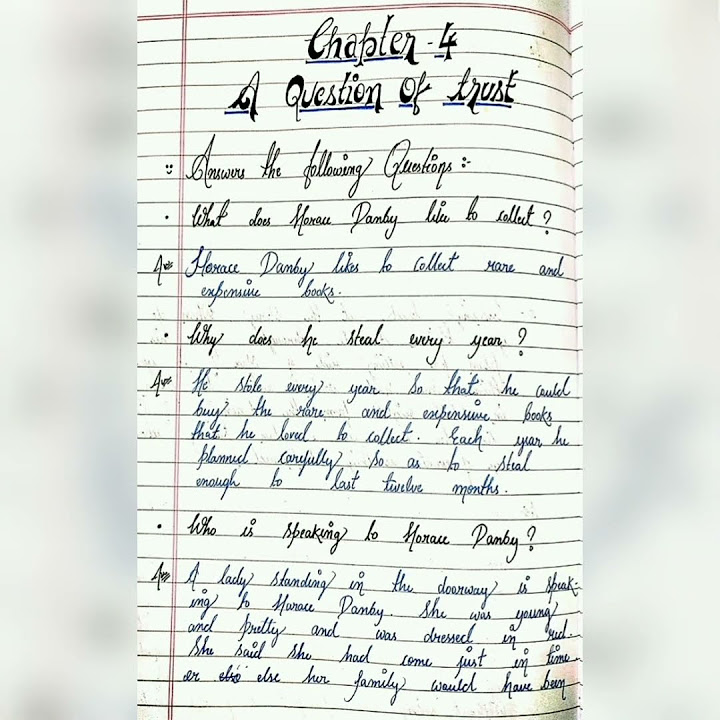 Chapter - 4
A Question Of trust
:: Answers the following Questions :-
• What does Horace Danby like to collect ?
A⇒ Horace Danby likes to collect rare and
expensive books.
• Why does he steal every year ?
A⇒ He stole every year so that he could
buy the rare and expensive books
that he loved to collect. Each year he
planned carefully so as to steal
enough to last twelve months.
• Who is speaking to Horace Danby ?
A⇒ A lady standing in the doorway is speak-
ing to Horace Danby. She was young
and pretty and was dressed in red.
She said she had come just in time
or else her family would have been